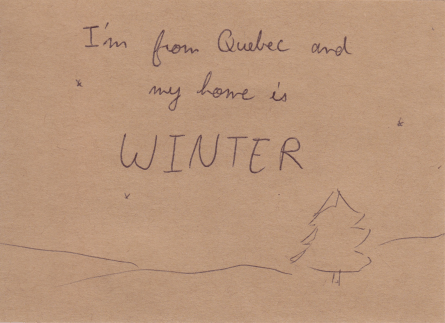 I'm from Quebec and
my home is
WINTER